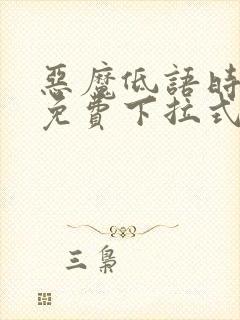 惡魔低語時
免費下拉式
三梟